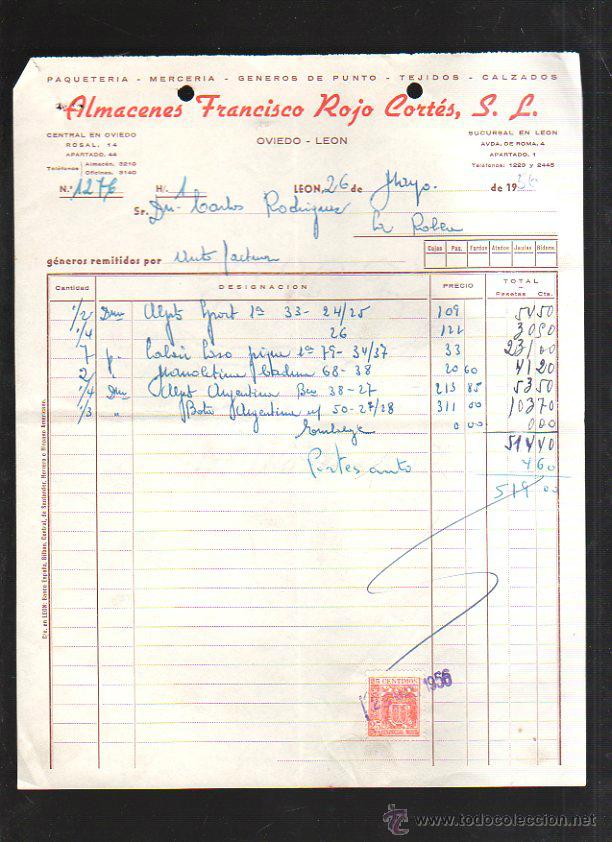 PAQUETERIA - MERCERIA - GENEROS DE PUNTO - TEJIDOS - CALZADOS
Almacenes Francisco Rojo Cortés, S. L.
CENTRAL EN OVIEDO
ROSAL, 14
APARTADO, 44
Teléfonos Almacén, 3210
Oficinas, 3140
OVIEDO - LEON
SUCURSAL EN LEON
AVDA. DE ROMA, 4
APARTADO, 1
Teléfonos: 1229 y 2445
N.º 1276 H/ 1 LEON, 26 de Mayo de 1956
Sr. Dn. Carlos Rodriguez
La Robla
géneros remitidos por
Cajas Paq. Fardos Atados Jaulas Bidons.
Cantidad DESIGNACION PRECIO TOTAL
Pesetas Cts.
1/2 Sport 1ª 33- 24/25 109 54 50
1/4 26 122 30 50
7 p. 1ª 79- 34/37 33 231 00
2 68-38 20 60 41 20
1/4 Argentina 38-27 213 85 53 50
1/3 " Bota Argentina 50-27/28 311 00 103 70
Embalaje 0 00 0 00
514 40
Portes auto 4 60
519 00
Cts. en LEON: Banco España, Bilbao, Central, de Santander, Herrero e Hispano Americano.
25 CENTIMOS
1956
www.todocoleccion.net